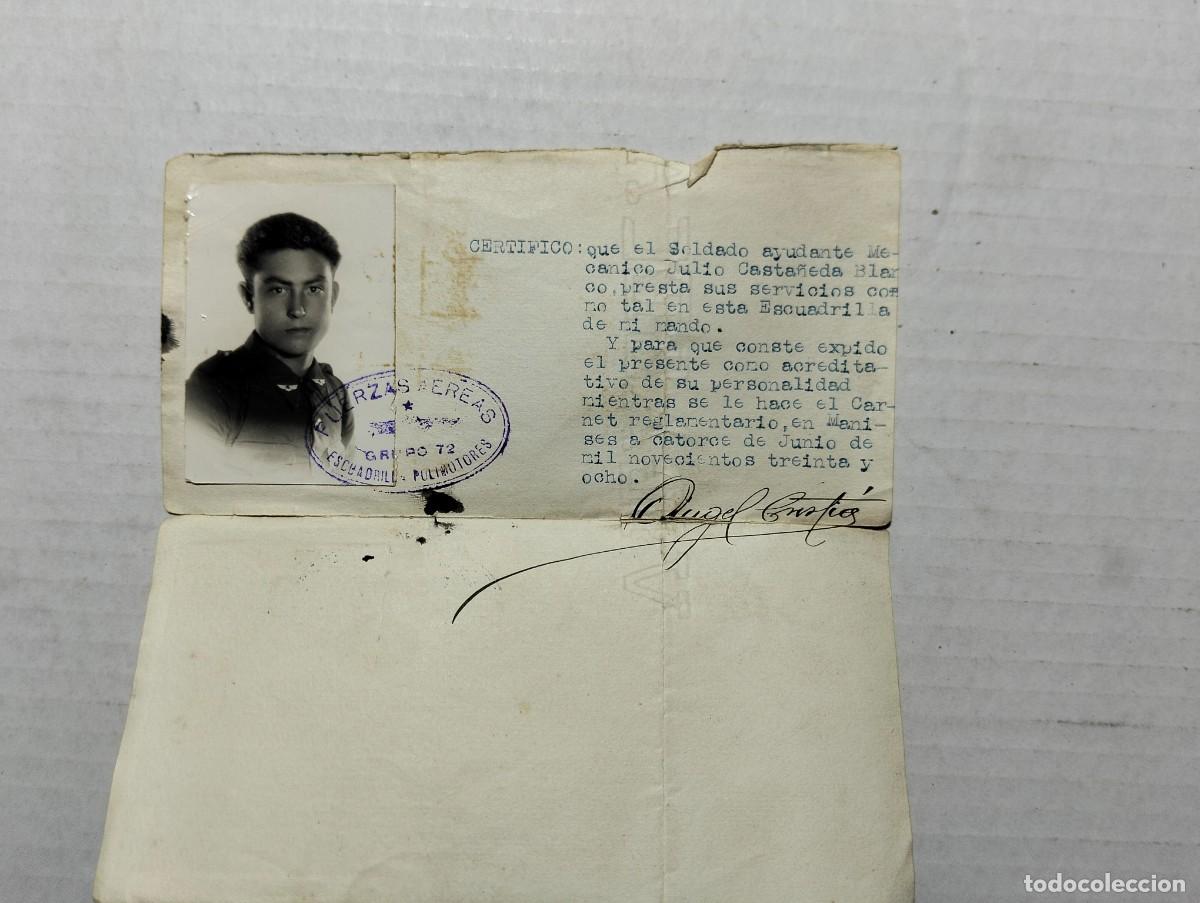 CERTIFICO: que el Soldado ayudante Me-
canico Julio Castañeda Blan
co, presta sus servicios co-
mo tal en esta Escuadrilla
de mi mando.
Y para que conste expido
el presente como acredita-
tivo de su personalidad
mientras se le hace el Car-
net reglamentario, en Mani-
ses a catorce de Junio de
mil novecientos treinta y
ocho.
FUERZAS AEREAS
GRUPO 72
ESCUADRILLA POLIMOTORES
Angel
todocoleccion